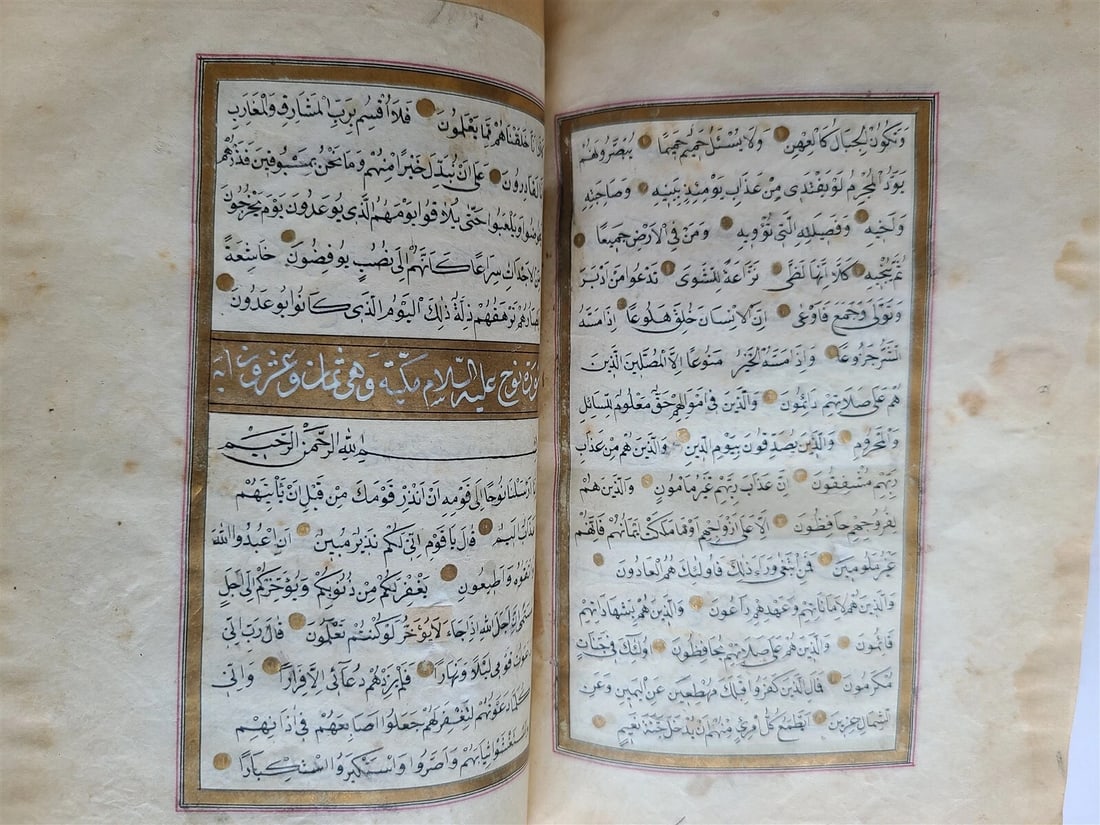 وَتَكُونُ الْجِبَالُ كَالْعِهْنِ وَلَا يَسْئَلُ حَمِيمٌ حَمِيمًا يُبَصَّرُونَهُمْ
يَوَدُّ الْمُجْرِمُ لَوْ يَفْتَدِى مِنْ عَذَابِ يَوْمِئِذٍ بِبَنِيهِ وَصَاحِبَتِهِ
وَاَخِيهِ وَفَصِيلَتِهِ الَّتِى تُؤْوِيهِ وَمَنْ فِى الْاَرْضِ جَمِيعًا
ثُمَّ يُنْجِيهِ كَلَّا اِنَّهَا لَظَى نَزَّاعَةً لِلشَّوَى تَدْعُوا مَنْ اَدْبَرَ
وَتَوَلَّى وَجَمَعَ فَاَوْعَى اِنَّ الْاِنْسَانَ خُلِقَ هَلُوعًا اِذَا مَسَّهُ
الشَّرُّ جَزُوعًا وَاِذَا مَسَّهُ الْخَيْرُ مَنُوعًا اِلَّا الْمُصَلِّينَ الَّذِينَ
هُمْ عَلَى صَلَاتِهِمْ دَائِمُونَ وَالَّذِينَ فِى اَمْوَالِهِمْ حَقٌّ مَعْلُومٌ لِلسَّائِلِ
وَالْمَحْرُومِ وَالَّذِينَ يُصَدِّقُونَ بِيَوْمِ الدِّينِ وَالَّذِينَ هُمْ مِنْ عَذَابِ
رَبِّهِمْ مُشْفِقُونَ اِنَّ عَذَابَ رَبِّهِمْ غَيْرُ مَاْمُونٍ وَالَّذِينَ هُمْ
لِفُرُوجِهِمْ حَافِظُونَ اِلَّا عَلَى اَزْوَاجِهِمْ اَوْ مَا مَلَكَتْ اَيْمَانُهُمْ فَاِنَّهُمْ
غَيْرُ مَلُومِينَ فَمَنِ ابْتَغَى وَرَاءَ ذَلِكَ فَاُولَئِكَ هُمُ الْعَادُونَ
وَالَّذِينَ هُمْ لِاَمَانَاتِهِمْ وَعَهْدِهِمْ رَاعُونَ وَالَّذِينَ هُمْ بِشَهَادَاتِهِمْ
قَائِمُونَ وَالَّذِينَ هُمْ عَلَى صَلَاتِهِمْ يُحَافِظُونَ اُولَئِكَ فِى جَنَّاتٍ
مُكْرَمُونَ فَمَالِ الَّذِينَ كَفَرُوا قِبَلَكَ مُهْطِعِينَ عَنِ الْيَمِينِ وَعَنِ
الشِّمَالِ عِزِينَ اَيَطْمَعُ كُلُّ امْرِئٍ مِنْهُمْ اَنْ يُدْخَلَ جَنَّةَ نَعِيمٍ
خَلَقْنَاهُمْ مِمَّا يَعْلَمُونَ فَلَا اُقْسِمُ بِرَبِّ الْمَشَارِقِ وَالْمَغَارِبِ
لَقَادِرُونَ عَلَى اَنْ نُبَدِّلَ خَيْرًا مِنْهُمْ وَمَا نَحْنُ بِمَسْبُوقِينَ فَذَرْهُمْ
وَيَلْعَبُوا حَتَّى يُلَاقُوا يَوْمَهُمُ الَّذِى يُوعَدُونَ يَوْمَ يَخْرُجُونَ
الْاَجْدَاثِ سِرَاعًا كَاَنَّهُمْ اِلَى نُصُبٍ يُوفِضُونَ خَاشِعَةً
تَرْهَقُهُمْ ذِلَّةٌ ذَلِكَ الْيَوْمُ الَّذِى كَانُوا يُوعَدُونَ
سورة نوح عليه السلام مكية وهى ثمان وعشرون اية
اللهِ الرَّحْمَنِ الرَّحِيمِ
اَرْسَلْنَا نُوحًا اِلَى قَوْمِهِ اَنْ اَنْذِرْ قَوْمَكَ مِنْ قَبْلِ اَنْ يَاْتِيَهُمْ
عَذَابٌ اَلِيمٌ قَالَ يَا قَوْمِ اِنِّى لَكُمْ نَذِيرٌ مُبِينٌ اَنِ اعْبُدُوا اللهَ
وَاَطِيعُونِ يَغْفِرْ لَكُمْ مِنْ ذُنُوبِكُمْ وَيُؤَخِّرْكُمْ اِلَى اَجَلٍ
اَجَلَ اللهِ اِذَا جَاءَ لَا يُؤَخَّرُ لَوْ كُنْتُمْ تَعْلَمُونَ قَالَ رَبِّ اِنِّى
قَوْمِى لَيْلًا وَنَهَارًا فَلَمْ يَزِدْهُمْ دُعَائِى اِلَّا فِرَارًا وَاِنِّى
كُلَّمَا دَعَوْتُهُمْ لِتَغْفِرَ لَهُمْ جَعَلُوا اَصَابِعَهُمْ فِى اٰذَانِهِمْ
وَاسْتَغْشَوْا ثِيَابَهُمْ وَاَصَرُّوا وَاسْتَكْبَرُوا اسْتِكْبَارًا